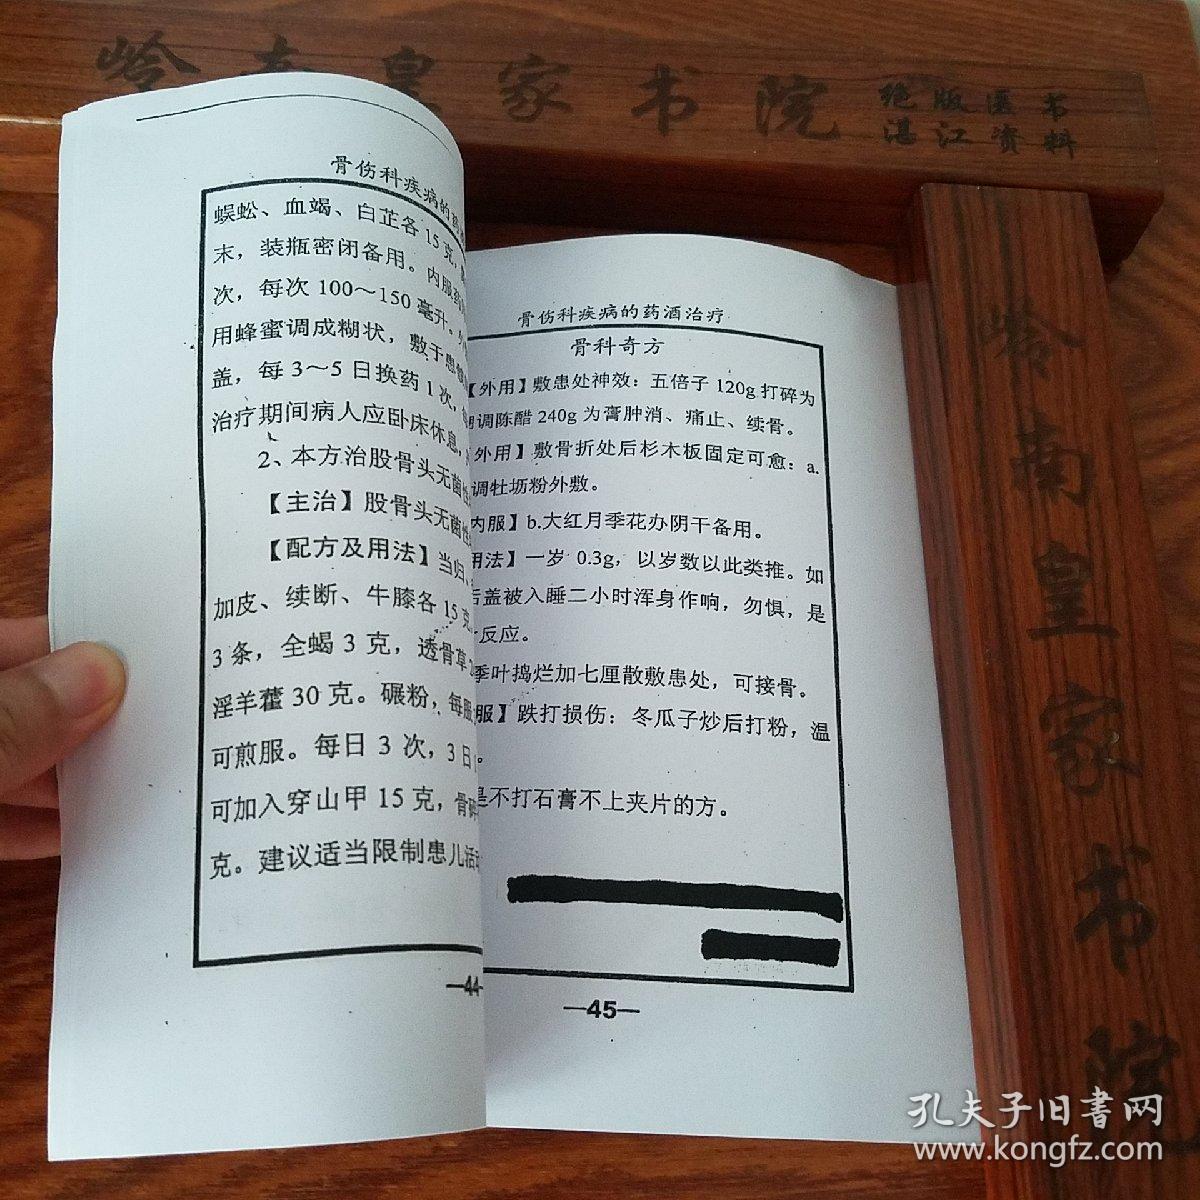 岭南皇家书院
绝版医书
湛江资料
骨伤科疾病的药
蜈蚣、血竭、白芷各15克,
末，装瓶密闭备用。内服药
次，每次100～150毫升。
用蜂蜜调成糊状，敷于患
盖，每3～5日换药1次，
治疗期间病人应卧床休息，
2、本方治股骨头无菌性
【主治】股骨头无菌性
【配方及用法】当归、
加皮、续断、牛膝各15克
3条，全蝎3克，透骨草
淫羊藿30克。碾粉，每服
可煎服。每日3次，3日
可加入穿山甲15克，骨碎
克。建议适当限制患儿活动
—44
骨伤科疾病的药酒治疗
骨科奇方
【外用】敷患处神效：五倍子120g打碎为
调陈醋240g为膏肿消、痛止、续骨。
外用】敷骨折处后杉木板固定可愈：a.
调牡坜粉外敷。
内服】b.大红月季花办阴干备用。
用法】一岁0.3g，以岁数以此类推。如
后盖被入睡二小时浑身作响，勿惧，是
反应。
季叶捣烂加七厘散敷患处，可接骨。
服】跌打损伤：冬瓜子炒后打粉，温
。
是不打石膏不上夹片的方。
—45—
岭南皇家书院
孔夫子旧書网
www.kongfz.com